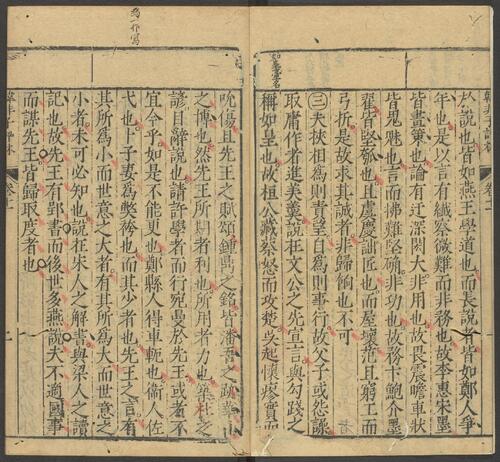 如皇臺名
於說也皆如燕王學道也而長說者皆如鄭人爭
年也是以言有纖察微難而非務也故李惠宋墨
皆畫策也論有迂深閎大非用也故畏震瞻車狀
皆鬼魅也言而拂難堅确非功也故務卞鮑介墨
翟皆堅瓠也且虞慶詘匠也而屋壞范且窮工而
弓折是故求其誠者非歸餉也不可
三夫挾相爲則責望自爲則事行故父子或怨譟
取庸作者進美羹說在文公之先宣言與勾踐之
稱如皇也故桓公藏蔡怒而攻楚吳起懷瘳實而
爲一作寫
吮傷且先王之賦頌鍾鼎之銘皆潘吾之跡華山
之博也然先王所期者利也所用者力也築社之
諺目辭說也請許學者而行宛曼於先王或者不
宜今乎如是不能更也鄭縣人得車軛也衞人佐
弋也卜子妻爲弊袴也而其少者也先王之言有
其所爲小而世意之大者有其所爲大而世意之
小者未可必知也說在宋人之解書與梁人之讀
記也故先王有郢書而後世多燕說夫不適國事
而謀先王皆歸取度者也